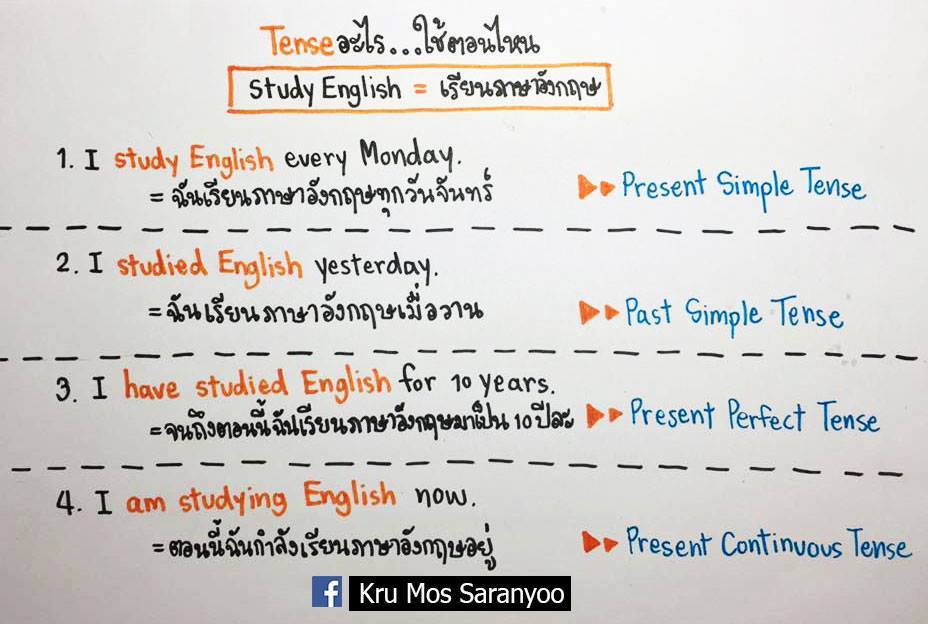 Tenseอะไร...ใช้ตอนไหน
Study English = เรียนภาษาอังกฤษ
1. I study English every Monday.
= ฉันเรียนภาษาอังกฤษทุกวันจันทร์
Present Simple Tense
2. I studied English yesterday.
= ฉันเรียนภาษาอังกฤษเมื่อวาน
Past Simple Tense
3. I have studied English for 10 years.
= จนถึงตอนนี้ฉันเรียนภาษาอังกฤษมาเป็น 10 ปีละ
Present Perfect Tense
4. I am studying English now.
= ตอนนี้ฉันกำลังเรียนภาษาอังกฤษอยู่
Present Continuous Tense
f Kru Mos Saranyoo